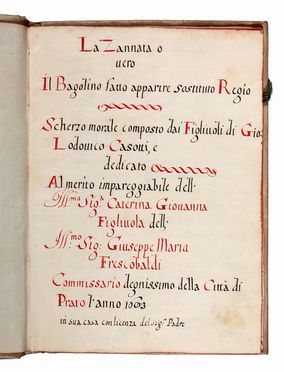 La Zannata o
uero
Il Bagolino fatto apparire sostituto Regio
Scherzo morale composto dai Figliuoli di Gio:
Lodouico Casoui, e
dedicato
Al merito impareggiabile dell:
Ill:ma Sig:a Caterina Giouanna
Figliuola dell:
Ill:mo Sig: Giuseppe Maria
Frescobaldi
Commissario degnissimo della Città di
Prato l'anno
in sua casa con licenza del Sig:r Padre